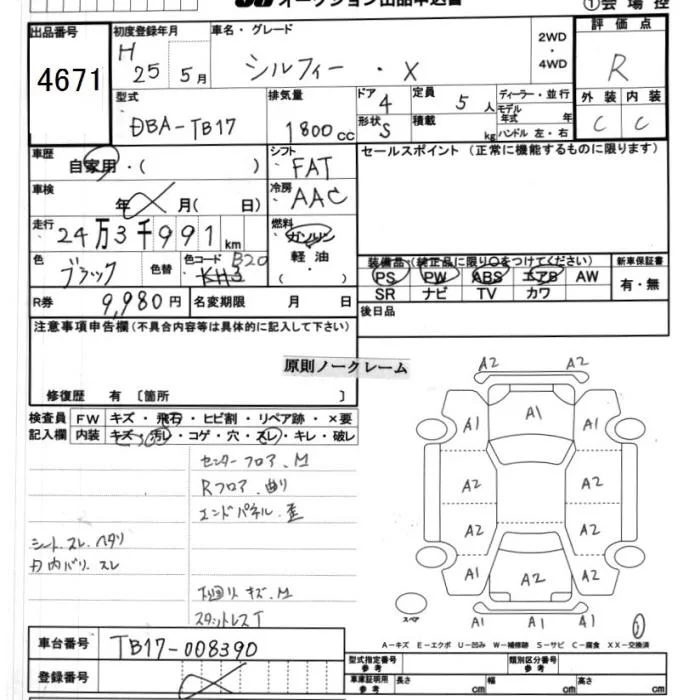 オークション出品申込書
①会場控
出品番号 初度登録年月 車名・グレード 2WD・4WD 評価点
4671 H 25年 5月 シルフィー・X R
型式 排気量 ドア 4 定員 5人 ディーラー・並行 外装 内装
DBA-TB17 1800cc 形状 S 積載 kg モデル年式 年 ハンドル 左・右 C C
車歴 自家用・( ) シフト FAT セールスポイント(正常に機能するものに限ります)
車検 年 月( 日) 冷房 AAC
走行 24万3千991km 燃料 ガソリン 軽油・( )
色 ブラック 色替 色コード KH3 B20
装備品(純正品に限り○をつけてください) 新車保証書
PS PW ABS エアB AW 有・無
SR ナビ TV カワ
R券 9,980円 名変期限 月 日 後日品
注意事項申告欄(不具合内容等は具体的に記入して下さい)
原則ノークレーム
修復歴 有〔箇所 〕
検査員記入欄 FW キズ・飛石・ヒビ割・リペア跡・×要
内装 キズ・汚レ・コゲ・穴・スレ・キレ・破レ
センターフロア.M
Rフロア.曲り
エンドパネル.歪
シート.スレ.ヘタリ
内バリ.スレ
下廻りキズ.M
A2 A2
A1 A1 A1
A2 A2
A2 A2
A1 A2 A1
A2 A1 41
スペア
①
A-キズ E-エクボ U-凹み W-補修跡 S-サビ C-腐食 XX-交換済
車台番号 TB17-008390
登録番号
型式指定番号 参考 類別区分番号 参考
車庫証明用 参考 長さ cm 幅 cm 高さ cm